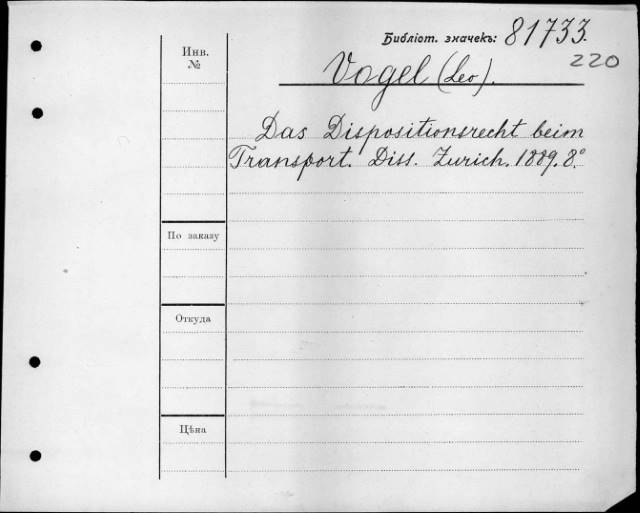 Библіот. значекъ: 81733.
220
Инв.
№
Vogel (Leo).
Das Dispositionsrecht beim
Transport. Diss. Zurich. 1889. 8º
По заказу
Откуда
Цѣна